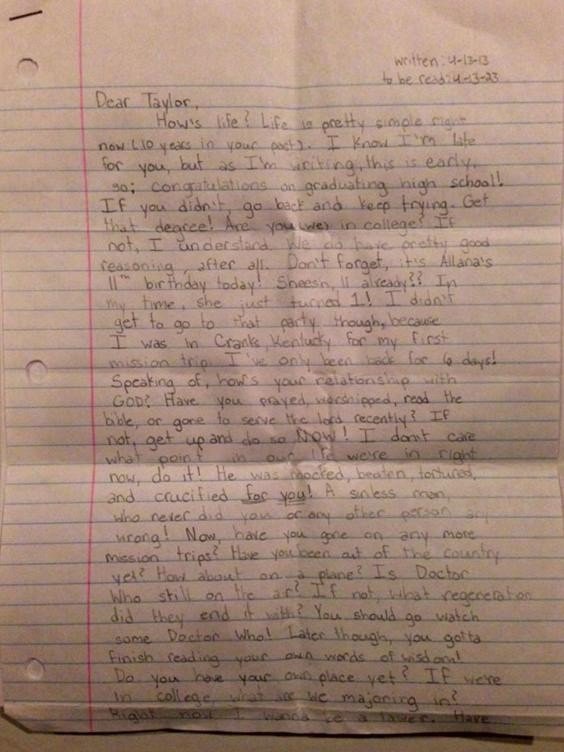 written: 4-13-13
to be read: 4-13-23
Dear Taylor,
How's life? Life is pretty simple right
now (10 years in your past). I know I'm late
for you, but as I'm writing, this is early,
so; congratulations on graduating high school!
If you didn't, go back and keep trying. Get
that degree! Are you(we) in college? If
not, I understand. We do have pretty good
reasoning, after all. Don't forget, it's Allana's
11th birthday today! Sheesh, 11 already?! In
my time, she just turned 1! I didn't
get to go to that party though, because
I was in Cranks, Kentucky for my first
mission trip. I've only been back for 6 days!
Speaking of, how's your relationship with
GOD? Have you prayed, worshipped, read the
bible, or gone to serve the lord recently? If
not, get up and do so NOW! I don't care
what point in our life we're in right
now, do it! He was mocked, beaten, tortured,
and crucified for you! A sinless man,
who never did you or any other person any
wrong! Now, have you gone on any more
mission trips? Have you been out of the country
yet? How about on a plane? Is Doctor
Who still on the air? If not, what regeneration
did they end it with? You should go watch
some Doctor Who! Later though, you gotta
finish reading your own words of wisdom!
Do you have your own place yet? If we're
in college, what are we majoring in?
Right now I wanna be a lawer. Have